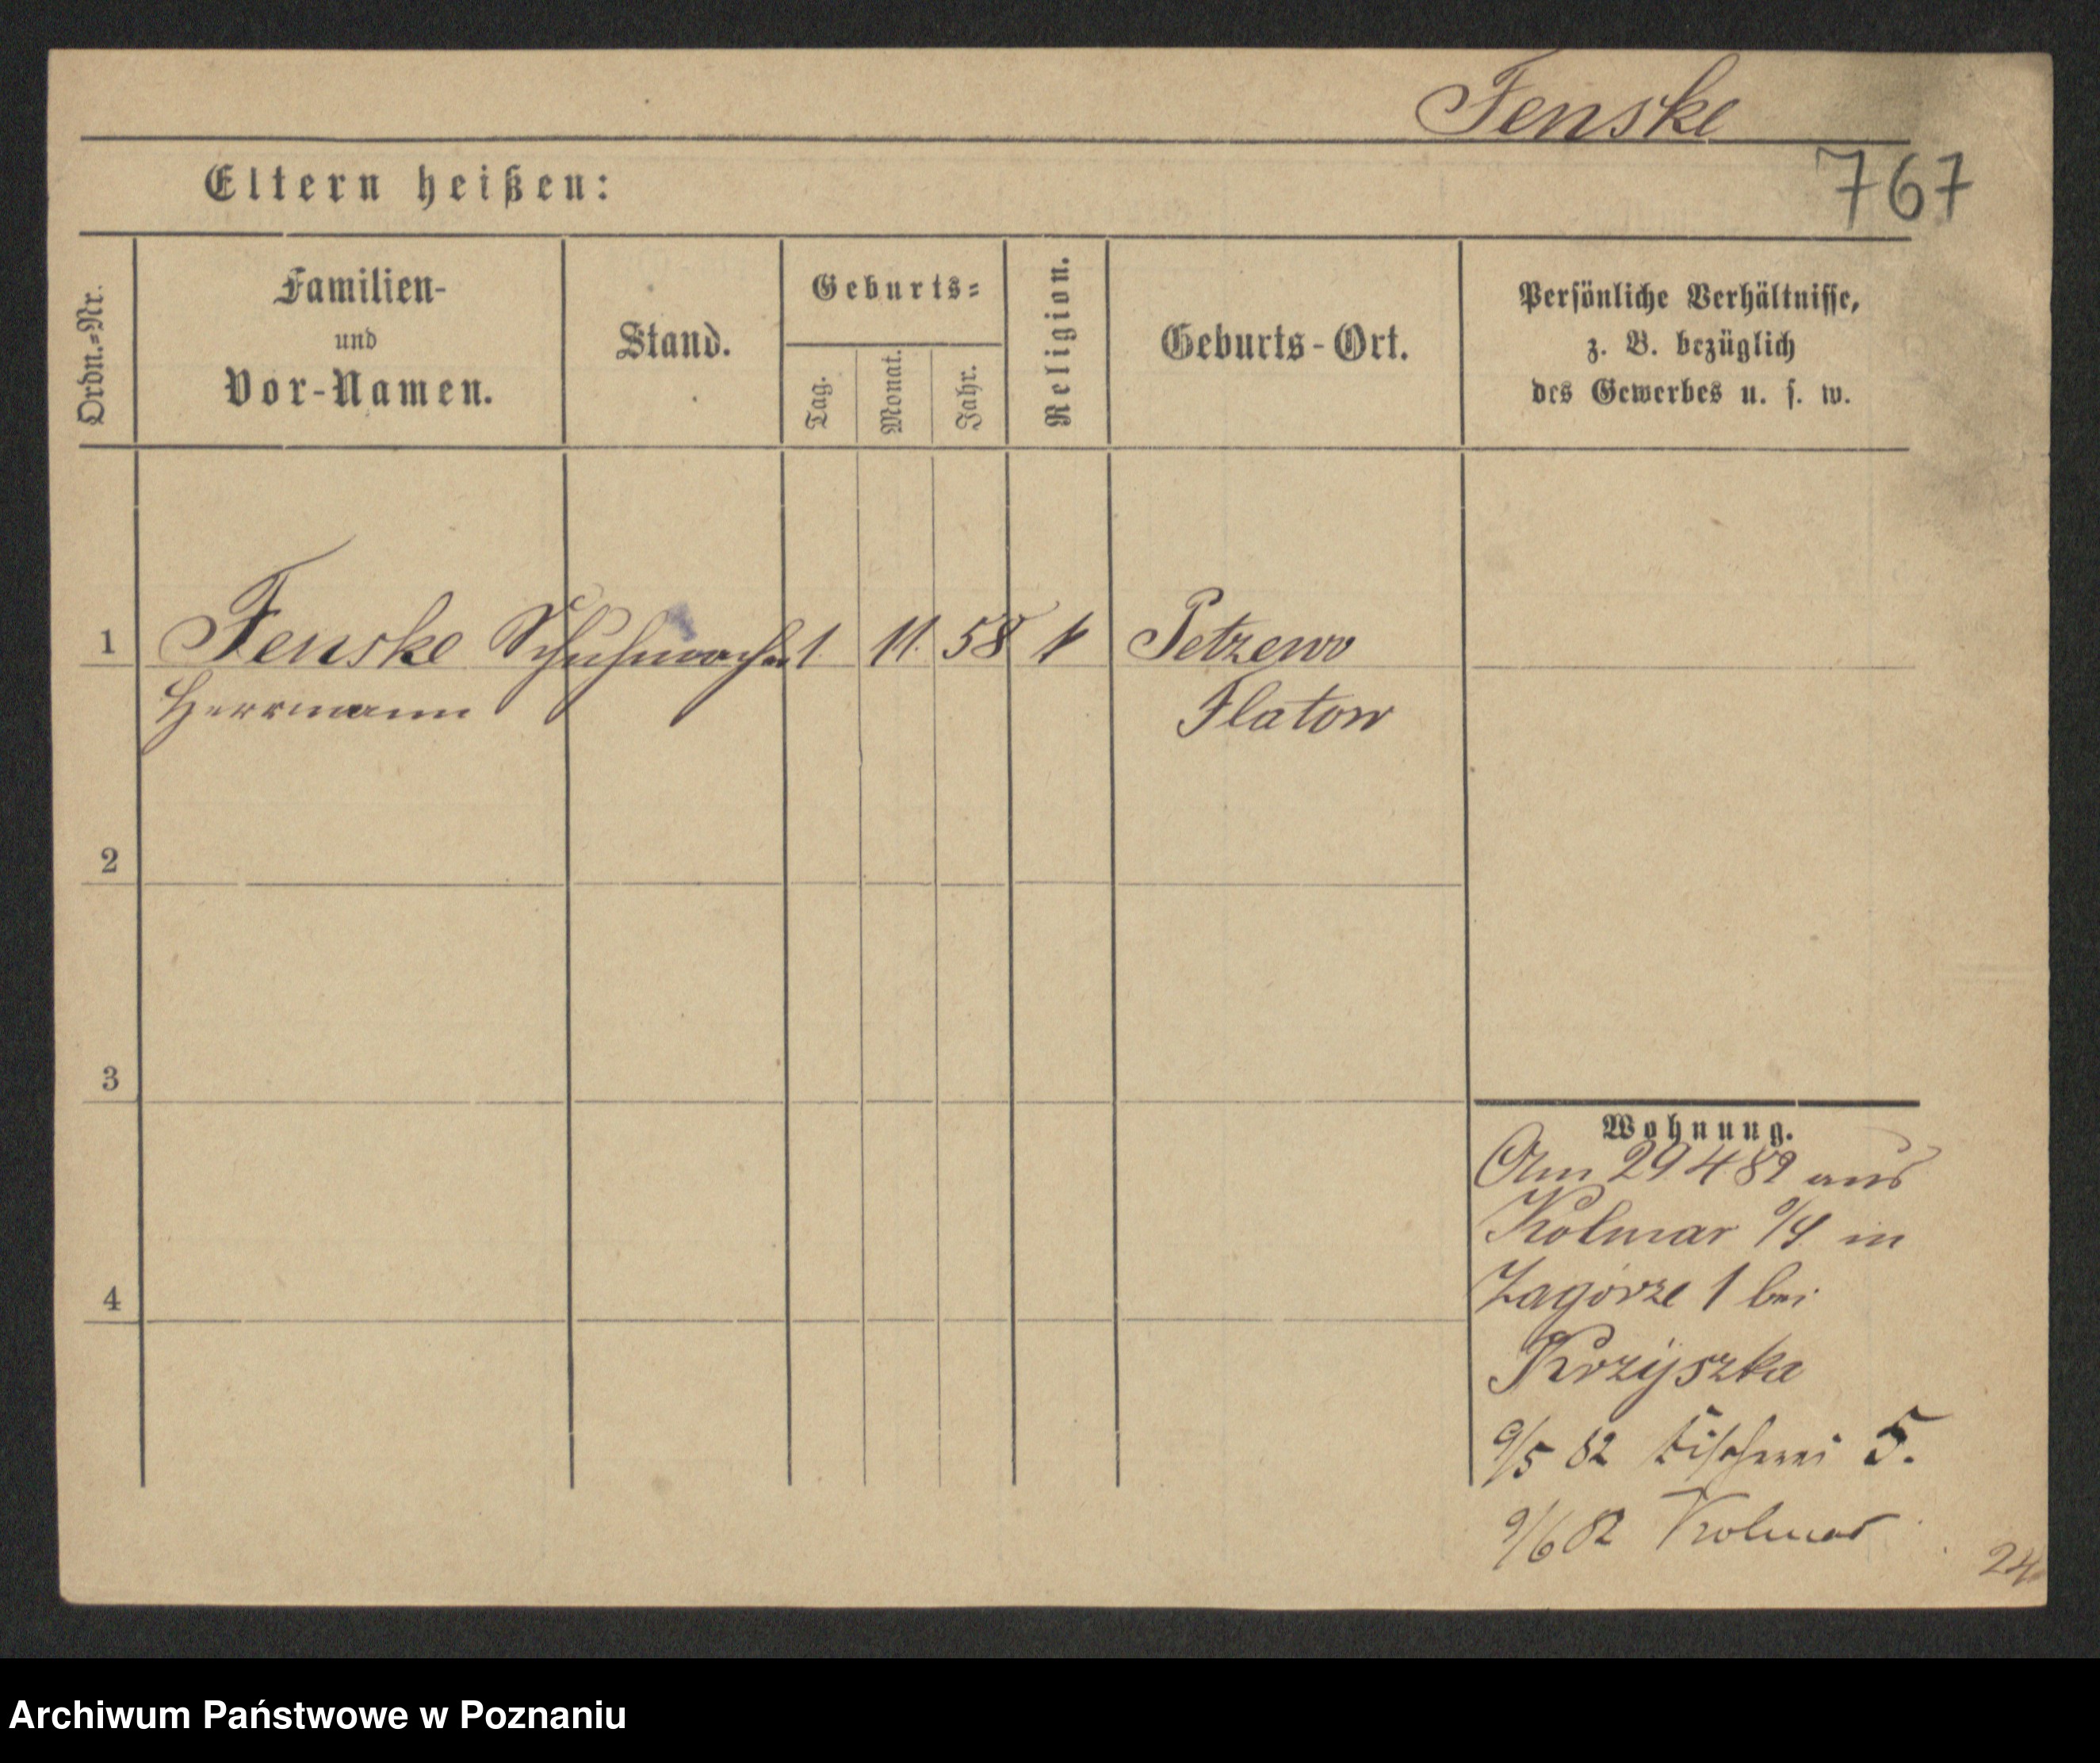 Fenske
767
Eltern heißen:
Ordn.-Nr.
Familien-
und
Vor-Namen.
Stand.
Geburts-
Tag.
Monat.
Jahr.
Religion.
Geburts-Ort.
Persönliche Verhältnisse,
z. B. bezüglich
des Gewerbes u. s. w.
1 Fenske Schuhmacher 1. 11. 58 k Petzewo
Herrmann Flatow
2
3
4
Wohnung.
Am 29 4 82 aus
Kolmar in
Zagórze 1 bei
Krzyszka
9/5 82 Fischerei 5.
9/6 82 Kolmar
24
Archiwum Państwowe w Poznaniu